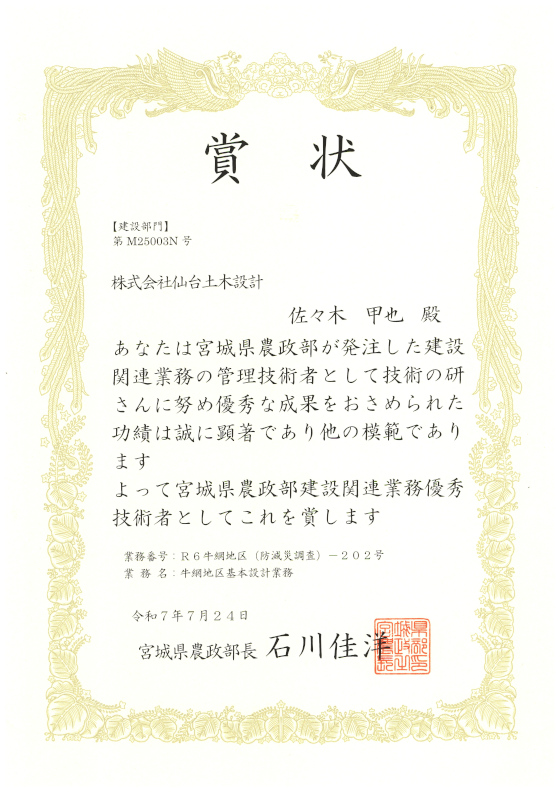 賞状
【建設部門】
第 M25003N 号
株式会社仙台土木設計
佐々木 甲也 殿
あなたは宮城県農政部が発注した建設
関連業務の管理技術者として技術の研
さんに努め優秀な成果をおさめられた
功績は誠に顕著であり他の模範であり
ます
よって宮城県農政部建設関連業務優秀
技術者としてこれを賞します
業務番号：Ｒ６牛網地区（防減災調査）－２０２号
業 務 名：牛網地区基本設計業務
令和７年７月２４日
宮城県農政部長 石川佳洋